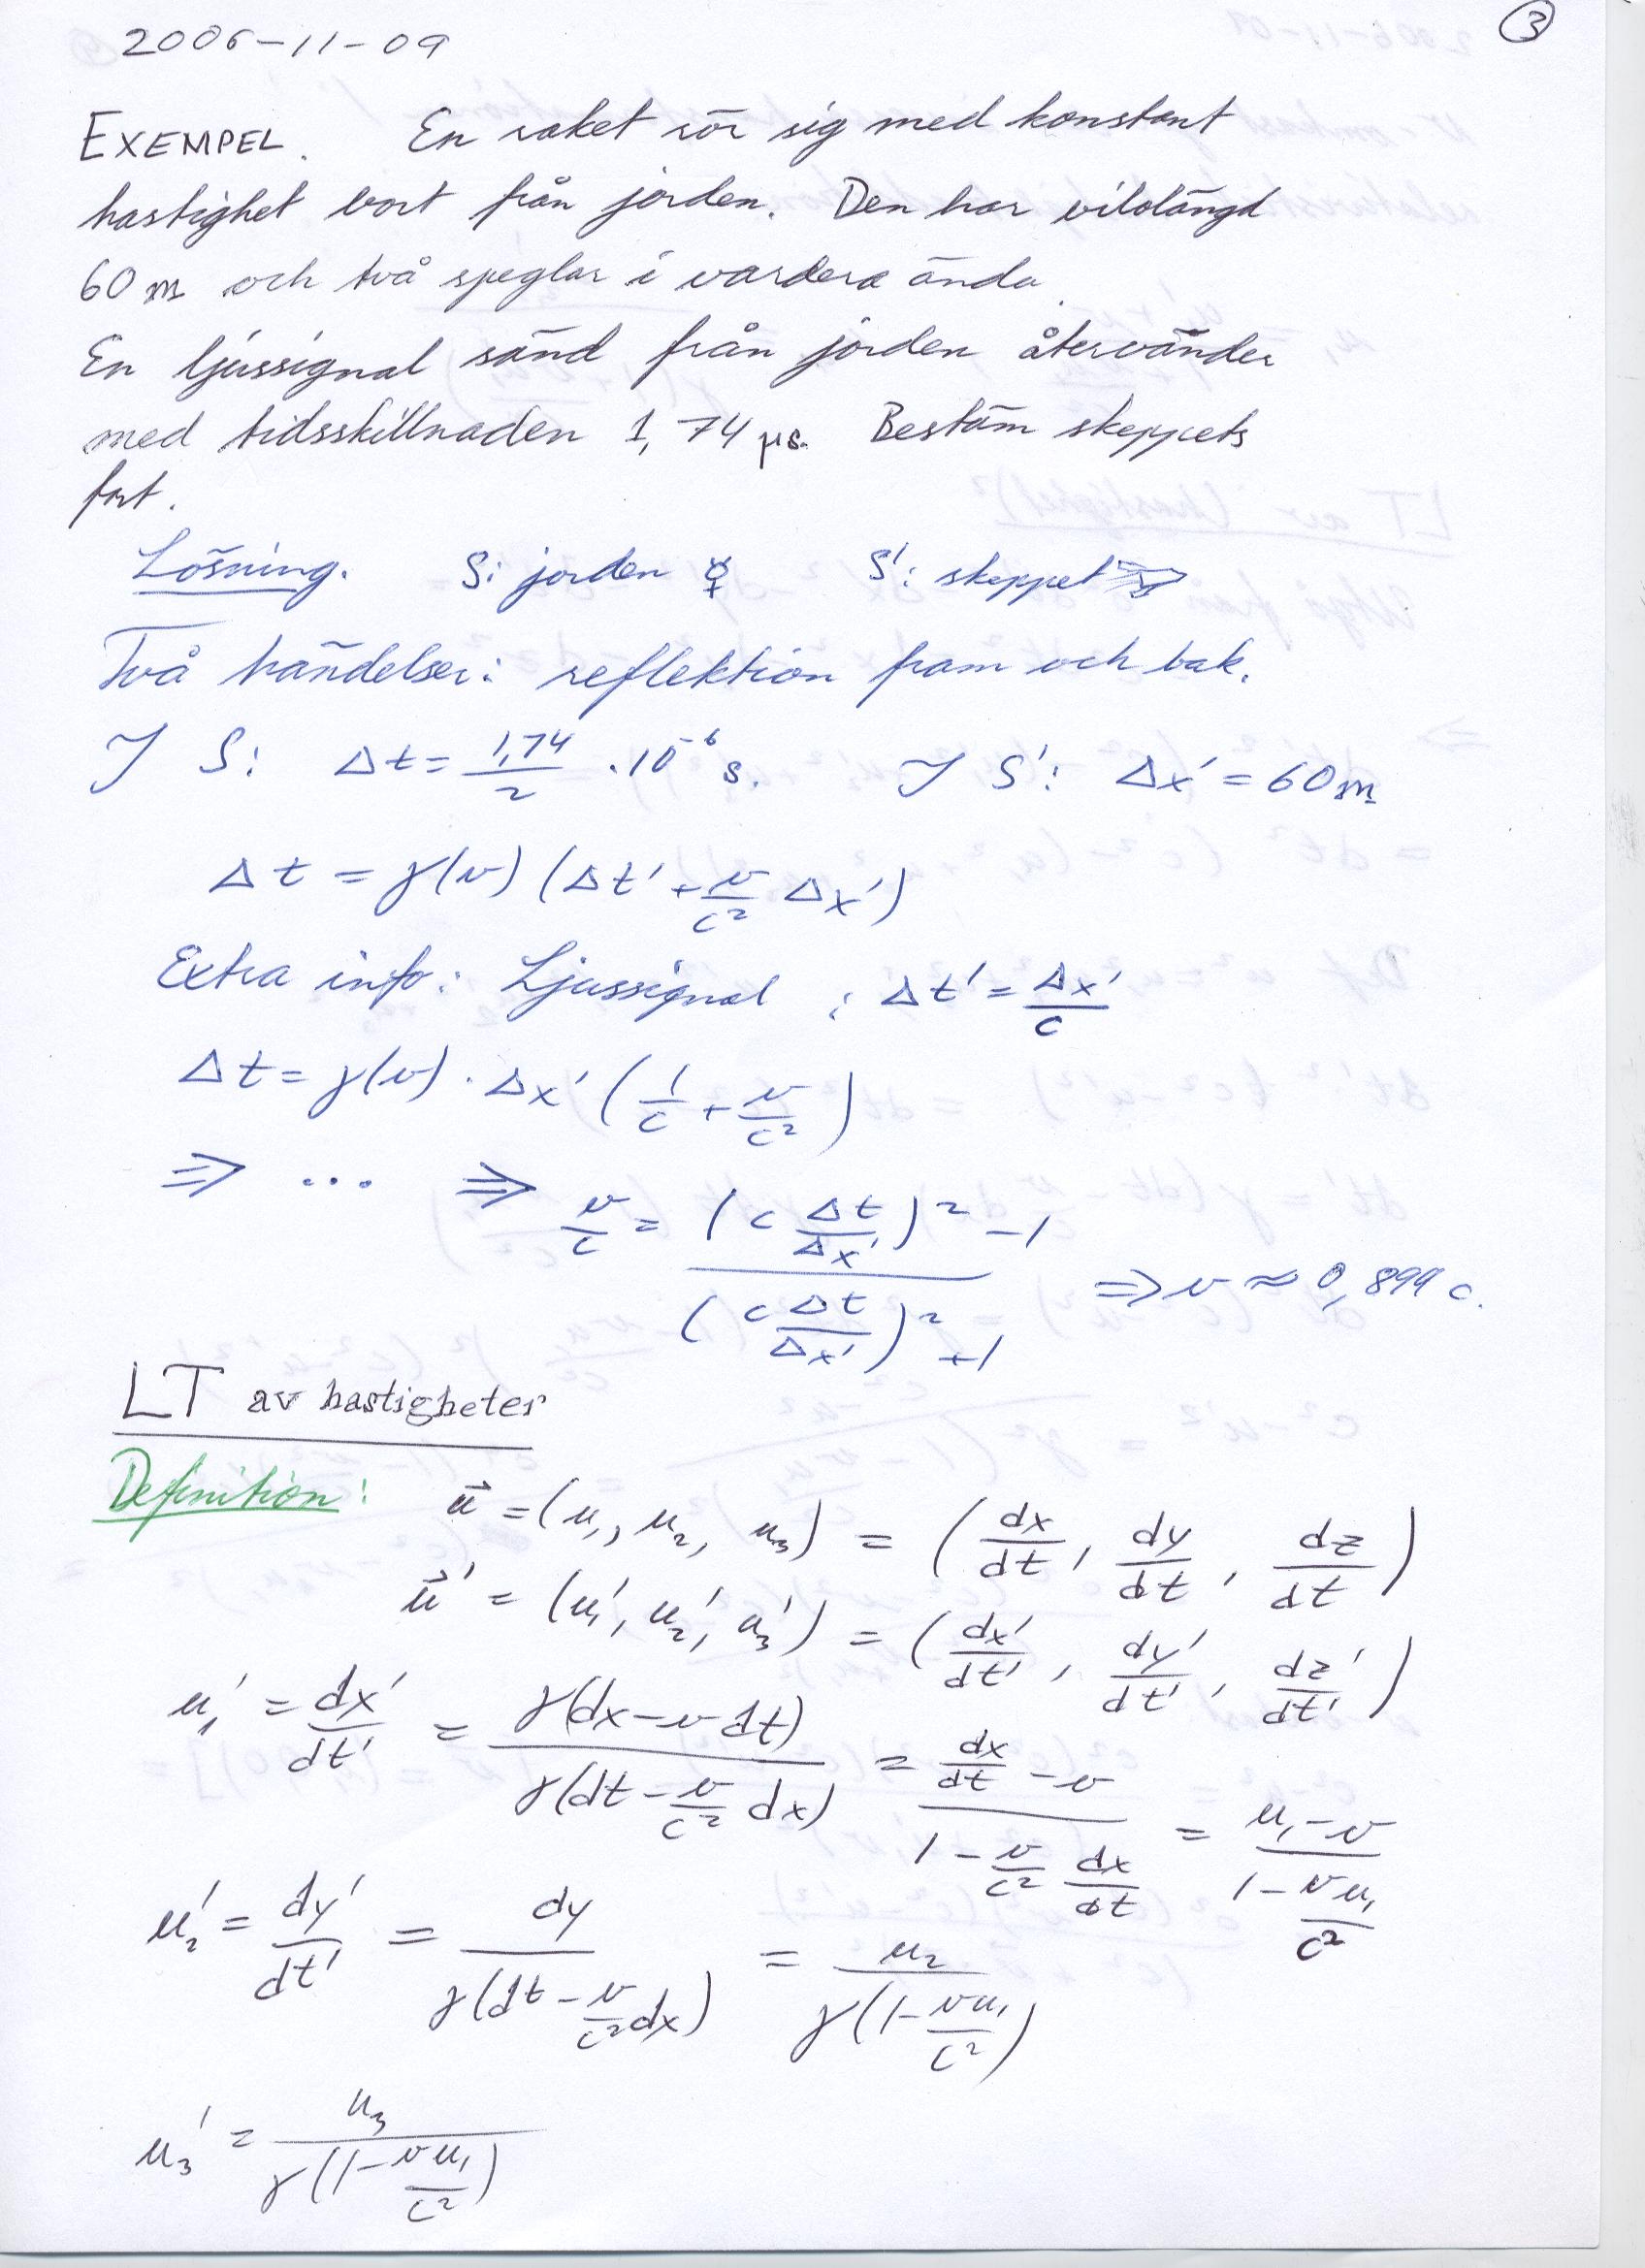 ③
2006-11-09
EXEMPEL. En raket rör sig med konstant
hastighet bort från jorden. Den har vilolängd
60 m och två speglar i vardera ända.
En ljussignal sänd från jorden återvänder
med tidsskillnaden 1,74 μs. Bestäm skeppets
fart.
Lösning. S: jorden S': skeppet
Två händelser: reflektion fram och bak.
I S: Δt = 1,74/2 · 10⁻⁶ s. I S': Δx' = 60 m
Δt = γ(v) (Δt' + v/c² Δx')
Extra info: Ljussignal : Δt' = Δx'/c
Δt = γ(v) · Δx' (1/c + v/c²)
⇒ ... ⇒ v/c = ((c Δt/Δx')² - 1)/((c Δt/Δx')² + 1) ⇒ v ≈ 0,899 c.
LT av hastigheter
Definition: u⃗ = (u₁, u₂, u₃) = (dx/dt, dy/dt, dz/dt)
u⃗' = (u₁', u₂', u₃') = (dx'/dt', dy'/dt', dz'/dt')
u₁' = dx'/dt' = γ(dx - v dt)/γ(dt - v/c² dx) = (dx/dt - v)/(1 - v/c² dx/dt) = (u₁ - v)/(1 - vu₁/c²)
u₂' = dy'/dt' = dy/γ(dt - v/c² dx) = u₂/γ(1 - vu₁/c²)
u₃' = u₃/γ(1 - vu₁/c²)